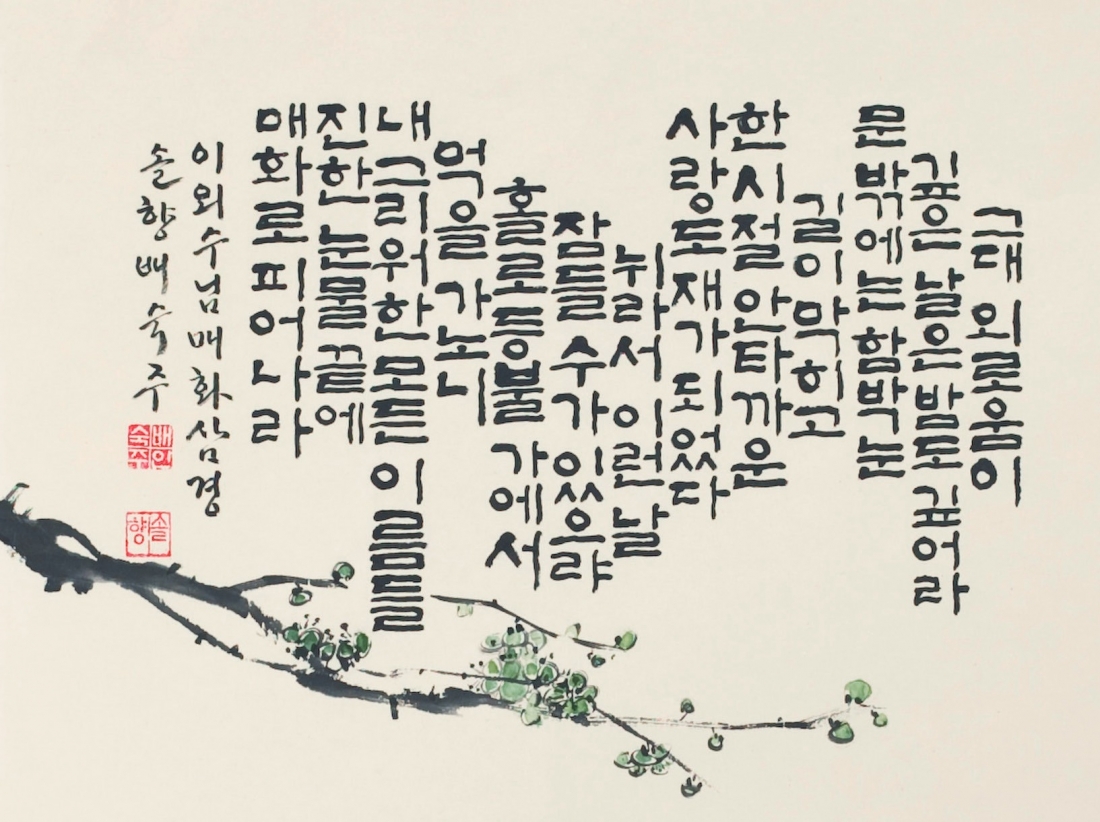 그대 외로움이
깊은 날은 밤도 깊어라
문 밖에는 함박눈
길이 막히고
한 시절 안타까운
사랑도 재가 되었다
뉘라서 이런 날
잠들 수가 있으랴
홀로 등불 가에서
먹을 가노니
내 그리워한 모든 이름들
진한 눈물 끝에
매화로 피어나라
이외수님 매화삼경
솔향 배숙주
배인숙주
솔향